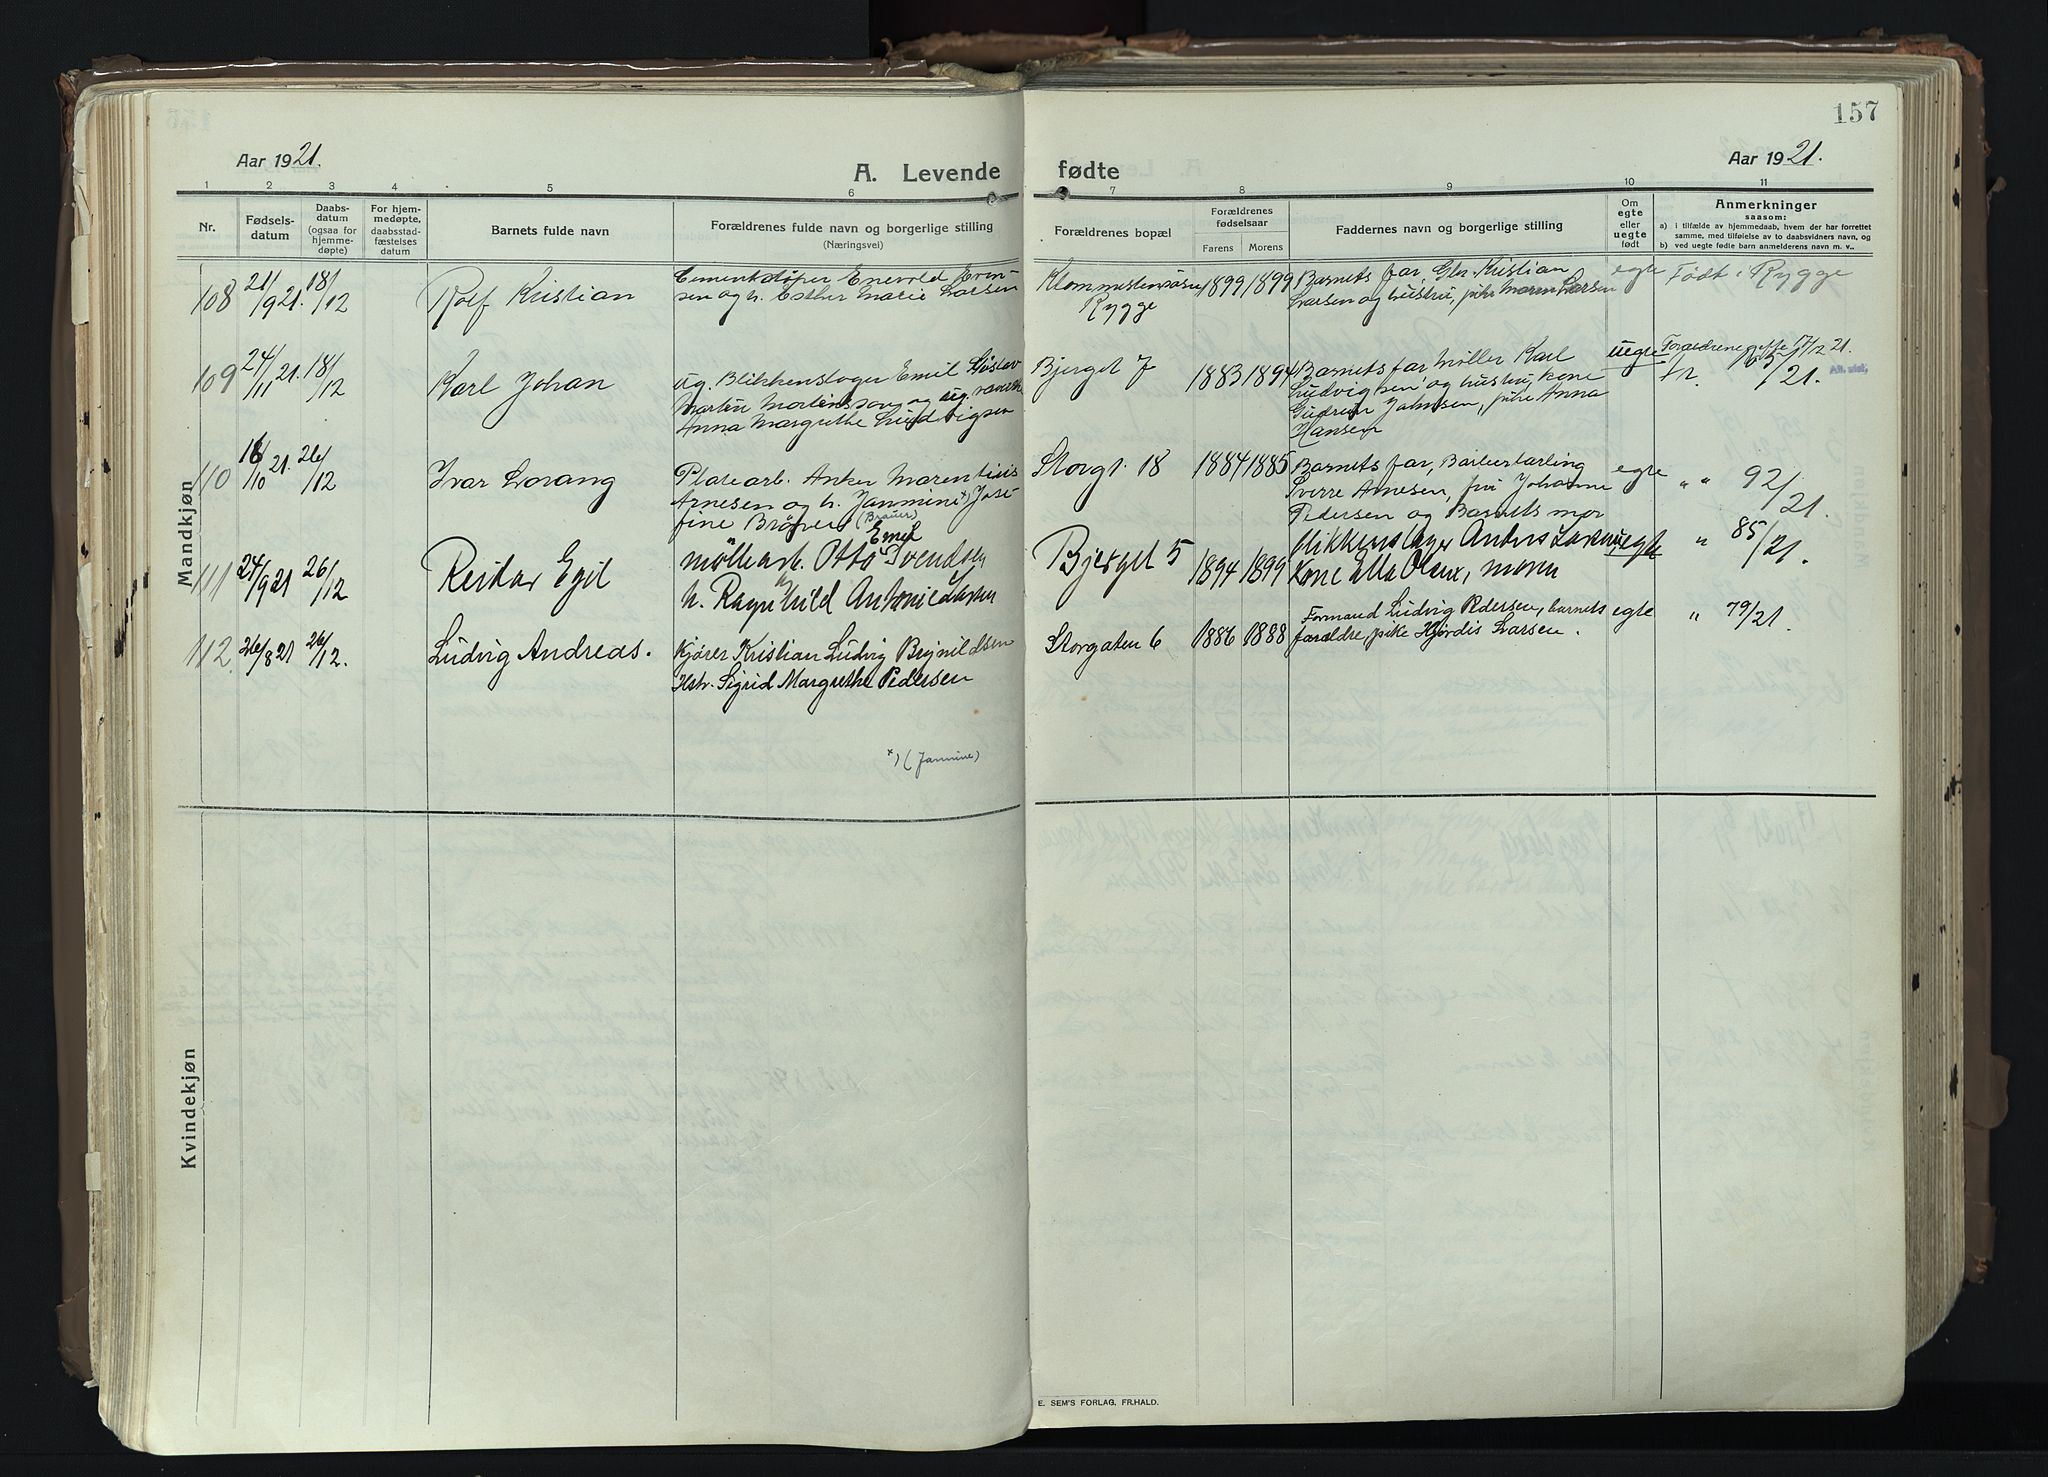 157
Aar 1921.
A. Levende
fødte
Aar 1921.
1 2 3 4 5 6 7 8 9 10 11
Nr.
Fødsels-
datum
Daabs-
datum
(ogsaa for
hjemme-
døpte)
For hjem-
medøpte,
daabsstad-
fæstelses
datum
Barnets fulde navn
Forældrenes fulde navn og borgerlige stilling
(Næringsvei)
Forældrenes bopæl
Forældrenes
fødselsaar
Farens Morens
Faddernes navn og borgerlige stilling
Om
egte
eller
uegte
født
Anmerkninger
saasom:
a) i tilfælde av hjemmedaab, hvem der har forrettet
samme, med tilføielse av to daabsvidners navn, og
b) ved uegte fødte barn anmelderens navn m. v..
Mandkjøn
108 21/9 21. 18/12 Rolf Kristian
Cementstøper Enevold Even-
sen og h. Esther Marie Larsen
Rygge
1899 1899
Barnets far, Kristian
Larsen og hustru, pike Maren Larsen
egte Født i Rygge
109 24/11 21. 18/12 Karl Johan
ug. Blikkenslager Emil Gustav
Martin Mortensson og ug.
Anna Margrethe Ludvigsen
Bjerget 7 1883 1894
Barnets far, Møller Karl
Ludvigsen og hustru, kone
Gudrun Johnsen, pike Anna
Hansen
uegte Forældrene gifte 17/12 21.
fr. 105/21.
110 16/10 21. 26/12 Ivar Lorang
Platearb. Anker Marentius
Arnesen og h. Janmine x) Jose-
fine Bröver (Brauer)
Storgt. 18 1884 1885
Barnets far,
Sverre Arnesen, fru Johanne
Pedersen og Barnets mor
egte " " 92/21.
111 24/9 21 26/12 Reidar Egil
Emil
Møllearb. Otto Svendsen
h. Ragnhild Antonie Larsen
Bjerget 5 1894 1899
Blikkenslager Anders Larsen
Kone Ella Olsen, moren
egte " 85/21.
112 26/8 21 26/12. Ludvig Andreas.
Kjører Kristian Ludvig Brynildsen
Hstr. Sigrid Margrethe Pedersen
Storgaten 6 1886 1888
Formand Ludvig Pedersen, barnets
forældre, pike Hjørdis Larsen.
egte " 79/21.
x) (Janmine)
Kvindekjøn
E. SEM'S FORLAG, FR.HALD.